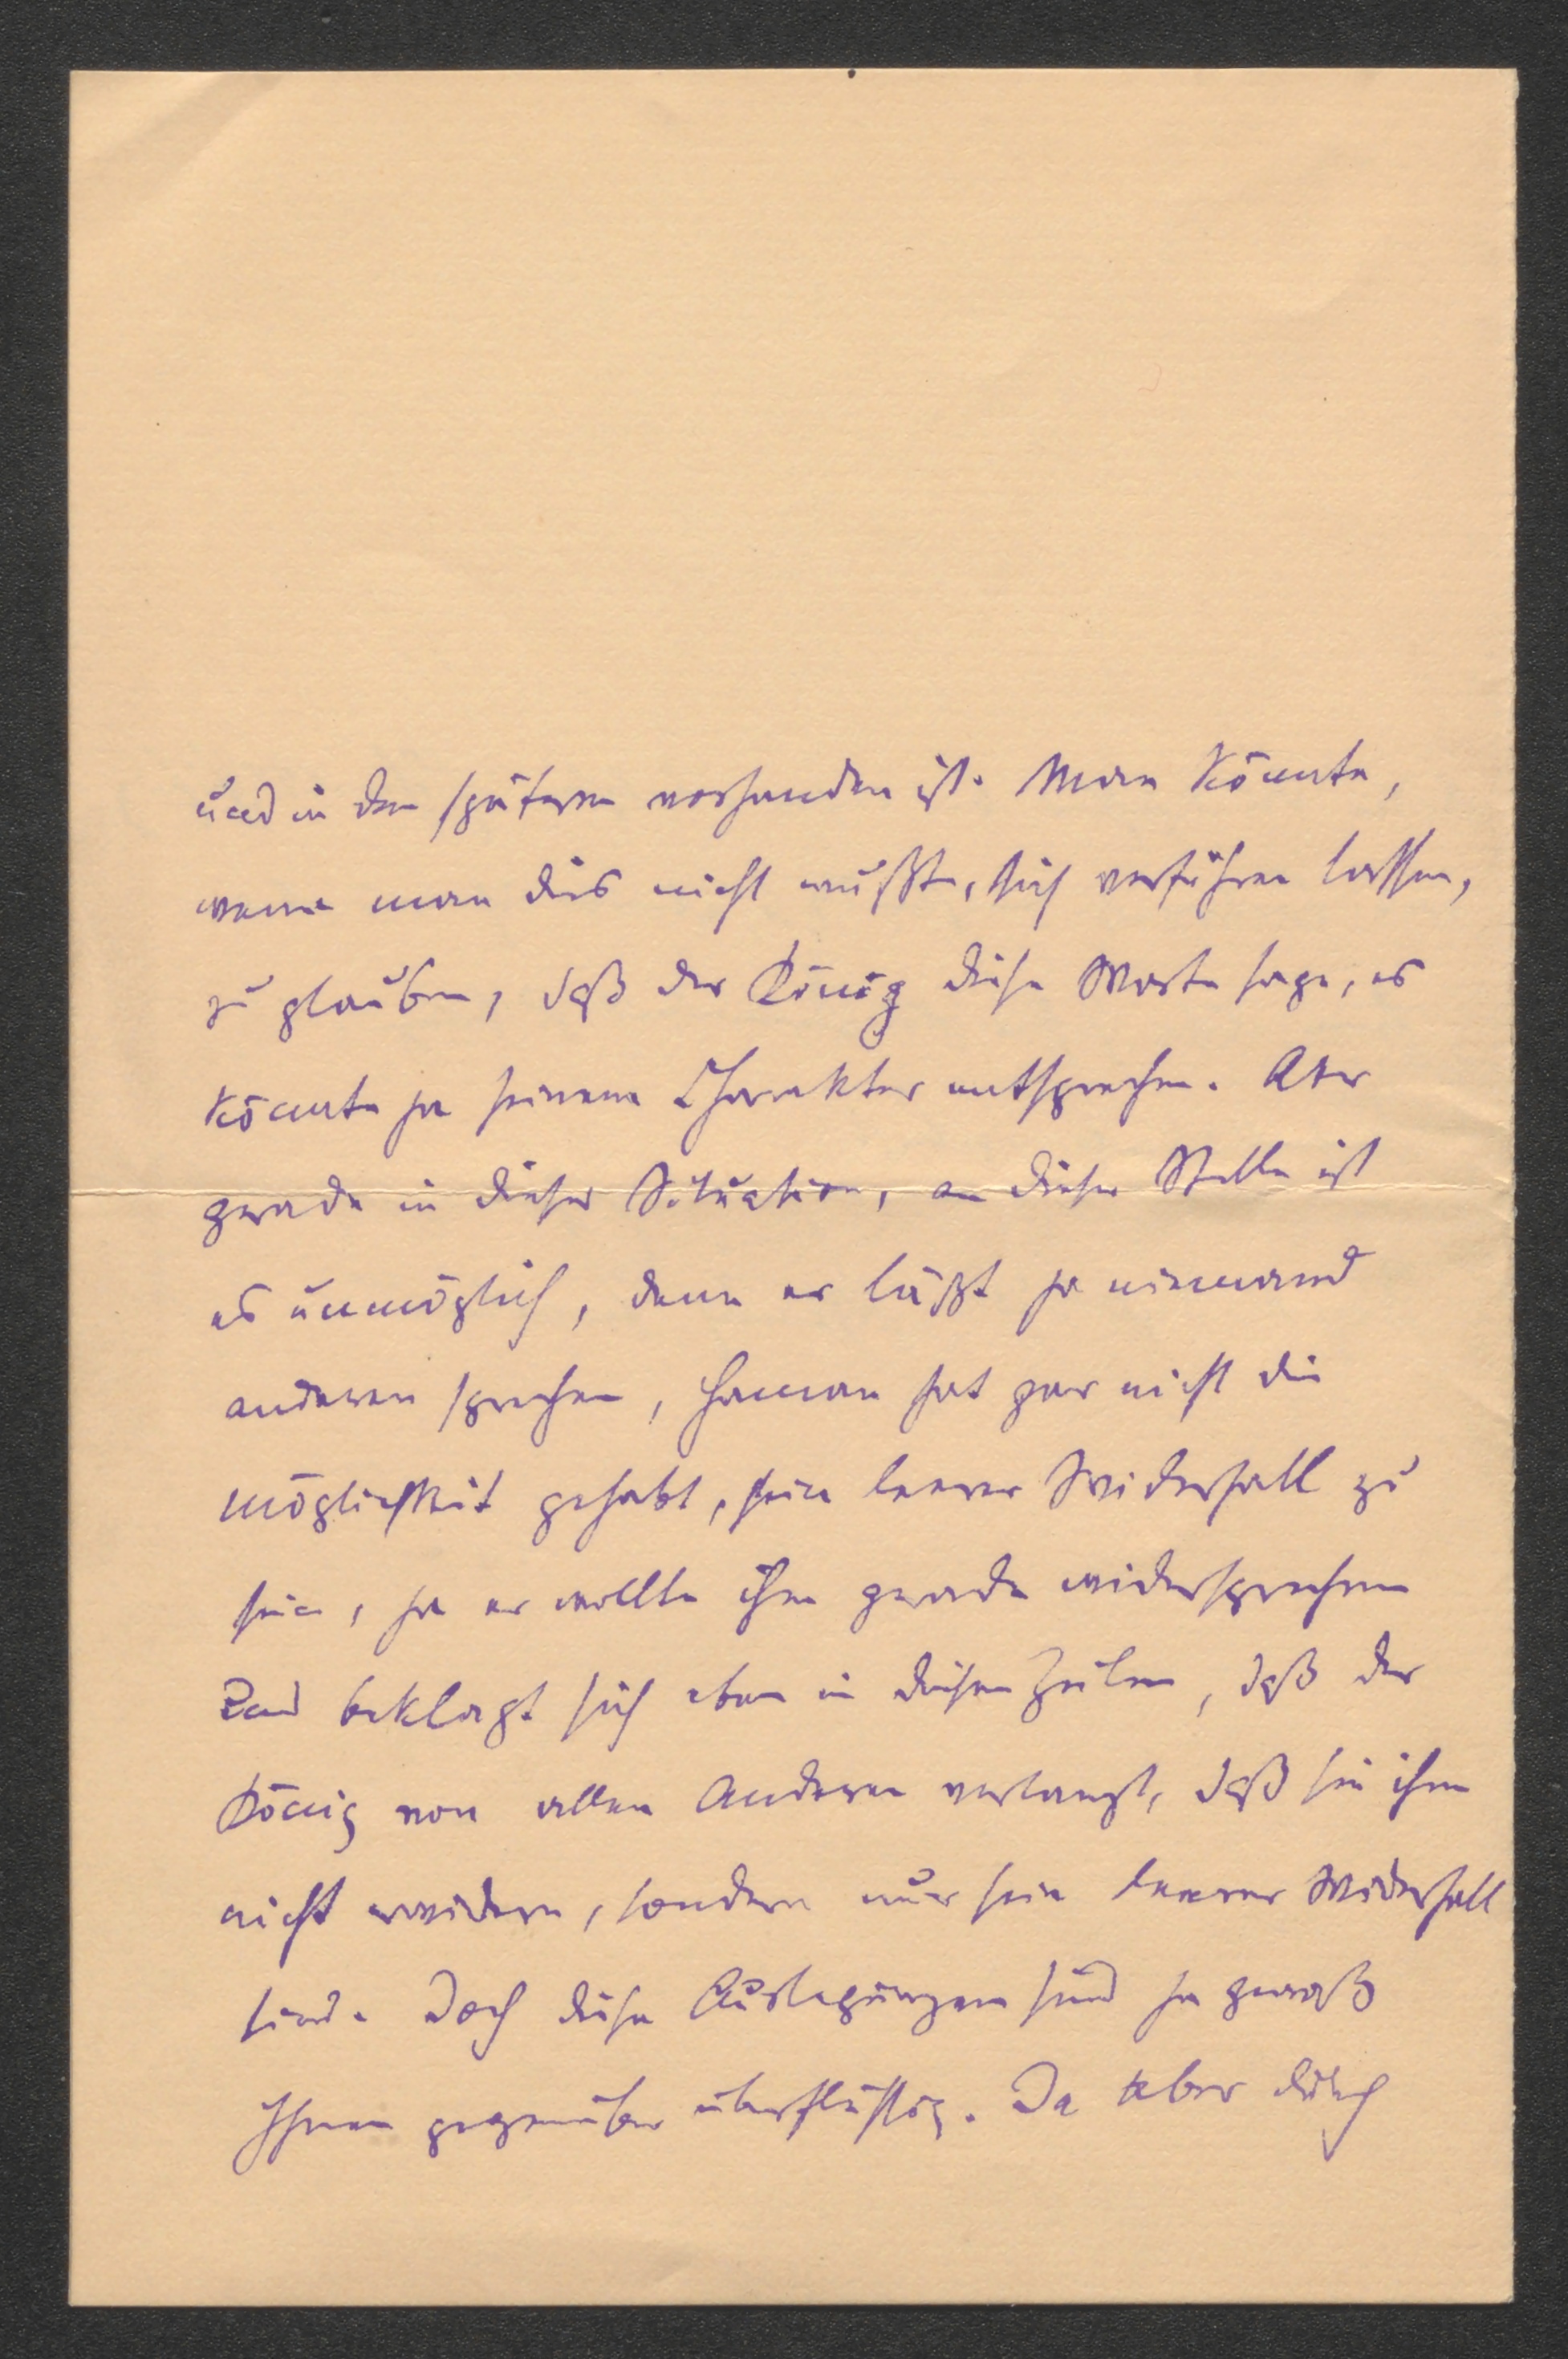 und in den späteren vorhanden ist. Man könnte,
wenn man dies nicht wüßte, sich verführen lassen,
zu glauben, daß der König diese Worte sage, es
könnte ja seinem Charakter entsprechen. Aber
gerade in dieser Situation, an dieser Stelle ist
es unmöglich, denn er läßt ja niemand
anderen sprechen, Haman hat gar nicht die
Möglichkeit gehabt, sein leerer Widerhall zu
sein, ja er wollte ihm gerade widersprechen
und beklagt sich eben in diesen Zeilen, daß der
König von allen Anderen verlangt, daß sie ihm
nicht erwidern, sondern nur sein leerer Widerhall
sind. Doch diese Auslegungen sind ja gewiß
Ihnen gegenüber überflüssig. Da aber durch